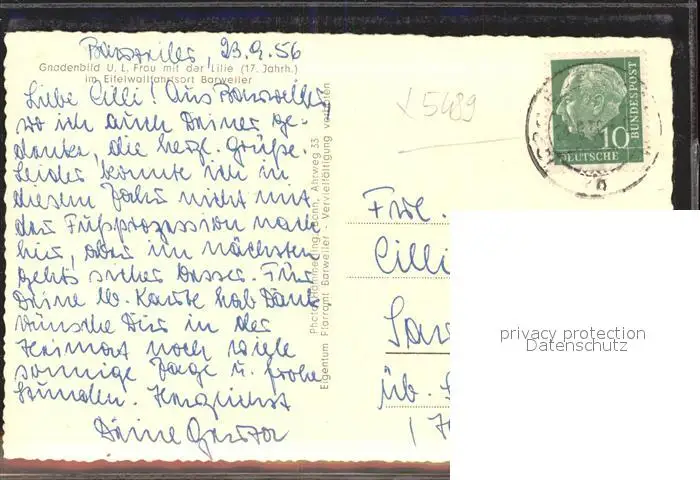 Barweiler, 23.9.56
Gnadenbild U. L. Frau mit der Lilie (17. Jahrh.)
im Eifelwallfahrtsort Barweiler
Liebe Cilli! Aus Barweiler,
wo ich auch Deiner ge-
denke, die herzl. Grüße.
Leider konnte ich in
diesem Jahr nicht mit
der Fußprozession nach
hier, aber im nächsten
gehts sicher besser. Für
Deine lb. Karte hab Dank
wünsche Dir in der
Heimat noch viele
sonnige Tage u. frohe
Stunden. Herzlichst
Deine
Bonn, Ahrweg 33
Eigentum Pfarramt Barweiler - Vervielfältigung verboten
5489
10
DEUTSCHE
BUNDESPOST
Frl.
Cilli
üb.
privacy protection
Datenschutz